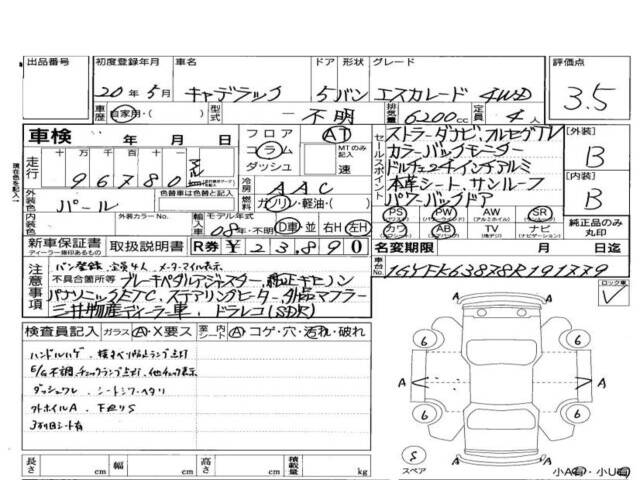 出品番号 初度登録年月 車名 ドア 形状 グレード 評価点
20年5月 キャデラック 5 バン エスカレード 4WD 3.5
車歴 自家用・( ) 型式 不明 排気量 6200cc 定員 4人
車検 年 月 日 フロア AT
コラム MTのみ記入
ダッシュ 速
走行 十万 万 千 百 十 一
96780
セールスポイント
ストラーダナビ フルセグTV
カラーバックモニター
本革シート、サンルーフ
パワーバックドア
[外装] B
[内装] B
外装色 パール 色替車は色替と記入 冷房 AAC
燃料 ガソリン・軽油・( )
内装色 外装カラーNo. 輸入車 モデル年式 08年・不明 D車・並 右H 左H
PS AW SR
カワ AB TV ナビ
純正品のみ丸印
新車保証書 取扱説明書 R券 ¥23,890
名変期限 月 日迄
車台No.
注意事項 不具合箇所等
バン登録、定員4人 メーターマイル表示
ブレーキペダルアジャスター
パナソニックETC、ステアリングヒーター、外品マフラー
三井物産ディーラー車、ドラレコ(SDR)
ロック車
検査員記入 ガラス A・X要ス 室内シート A・コゲ・穴・汚れ・破れ
E/G不調、チェックランプ点灯、他チェック表示
ダッシュワレ、シートシワ・ヘタリ
外ホイルA、下廻りS
3列目シート有
6 6
A A A
6 6
S
スペア A 小A有・小U有
長さ cm 幅 cm 高さ cm 積載量 kg